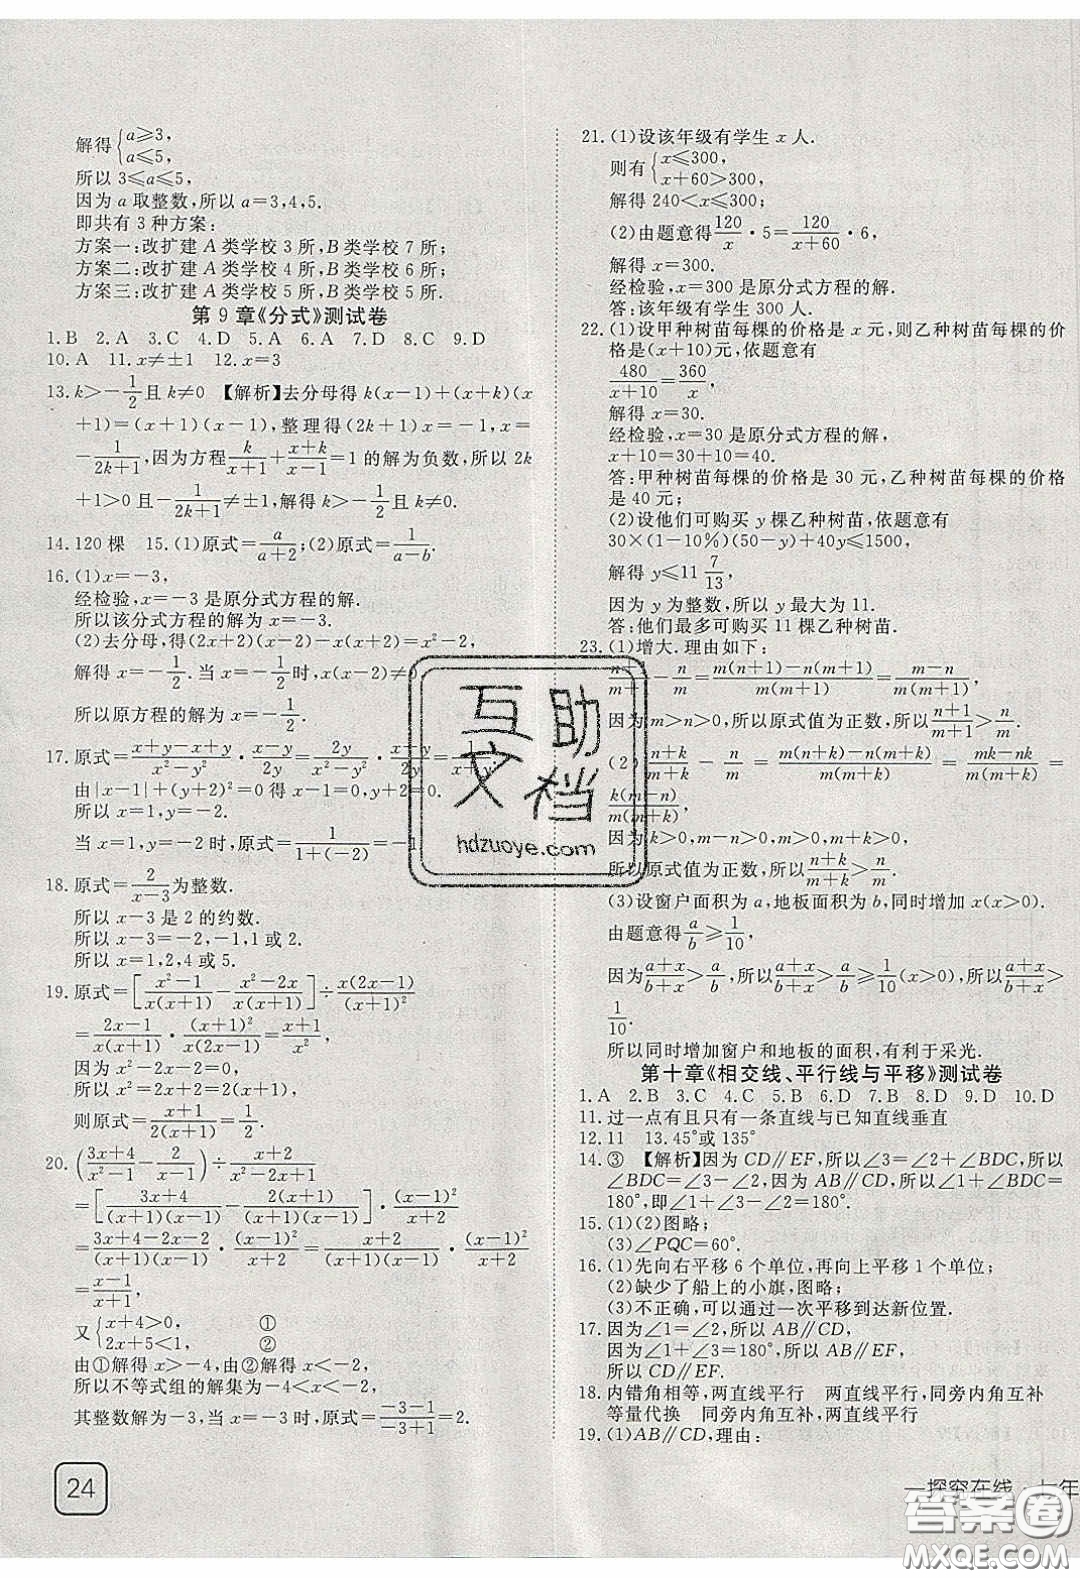 解得{a≥3,
a≤5,
所以 3≤a≤5,
因为 a 取整数,所以 a=3,4,5.
即共有 3 种方案:
方案一:改扩建 A 类学校 3 所,B 类学校 7 所;
方案二:改扩建 A 类学校 4 所,B 类学校 6 所;
方案三:改扩建 A 类学校 5 所,B 类学校 5 所.
第 9 章《分式》测试卷
1.B 2.A 3.C 4.D 5.A 6.A 7.D 8.C 9.D
10.A 11.x≠±1 12.x=3
13.k>-1/2且 k≠0 【解析】去分母得 k(x-1)+(x+k)(x
+1)=(x+1)(x-1),整理得(2k+1)x=-1,x=
-1/(2k+1),因为方程k/(x+1)+(x+k)/(x-1)=1 的解为负数,所以 2k
+1>0 且-1/(2k+1)≠±1,解得 k>-1/2且 k≠0.
14.120 棵 15.(1)原式=a/(a+2);(2)原式=1/(a-b).
16.(1)x=-3,
经检验,x=-3 是原分式方程的解.
所以该分式方程的解为 x=-3.
(2)去分母,得(2x+2)(x-2)-x(x+2)=x²-2,
解得 x=-1/2.当 x=-1/2时,x(x-2)≠0
所以原方程的解为 x=-1/2.
17.原式=(x+y-x+y)/(x²-y²)·(x-y)/2y=2y/(x²-y²)·(x-y)/2y=1/(x+y).
由|x-1|+(y+2)²=0得 x-1=0,y+2=0.
所以 x=1,y=-2.
当 x=1,y=-2 时,原式=1/(1+(-2))=-1
18.原式=2/(x-3)为整数.
所以 x-3 是 2 的约数.
所以 x-3=-2,-1,1 或 2.
所以 x=1,2,4 或 5.
19.原式=[(x²-1)/x(x+1)-(x²-2x)/x(x+1)]÷x(2x-1)/(x+1)²
=(2x-1)/x(x+1)·(x+1)²/x(2x-1)=(x+1)/x².
因为 x²-2x-2=0,
所以 x²=2x+2=2(x+1).
则原式=(x+1)/2(x+1)=1/2.
20.((3x+4)/(x²-1)-2/(x-1))÷(x+2)/(x²-2x+1)
=[(3x+4)/(x+1)(x-1)-2(x+1)/(x+1)(x-1)]·(x-1)²/(x+2)
=(3x+4-2x-2)/(x+1)(x-1)·(x-1)²/(x+2)=(x+2)/(x+1)(x-1)·(x-1)²/(x+2)
=(x-1)/(x+1),
又{x+4>0, ①
2x+5<1, ②
由①解得 x>-4,由②解得 x<-2.
所以不等式组的解集为-4<x<-2.
其整数解为-3,当 x=-3 时,原式=(-3-1)/(-3+1)=2.
24
21.(1)设该年级有学生 x 人.
则有{x≤300,
x+60>300,
解得 240<x≤300;
(2)由题意得120/x·5=120/(x+60)·6,
解得 x=300.
经检验,x=300 是原分式方程的解.
答:该年级有学生 300 人.
22.(1)设甲种树苗每棵的价格是 x 元,则乙种树苗每棵的价
格是(x+10)元,依题意有
480/(x+10)=360/x,
解得 x=30.
经检验,x=30 是原分式方程的解.
x+10=30+10=40.
答:甲种树苗每棵的价格是 30 元,乙种树苗每棵的价格
是 40 元;
(2)设他们可购买 y 棵乙种树苗,依题意有
30×(1-10%)(50-y)+40y≤1500,
解得 y≤11 7/13,
因为 y 为整数,所以 y 最大为 11.
答:他们最多可购买 11 棵乙种树苗.
23.(1)增大.理由如下:
(n+1)/(m+1)-n/m=(m(n+1)-n(m+1))/m(m+1)=(m-n)/m(m+1),
因为 m>n>0,所以原式值为正数,所以(n+1)/(m+1)>n/m.
(2)(n+k)/(m+k)-n/m=(m(n+k)-n(m+k))/m(m+k)=(mk-nk)/m(m+k)=
k(m-n)/m(m+k),
因为 k>0,m-n>0,m>0,m+k>0,
所以原式值为正数,所以(n+k)/(m+k)>n/m.
(3)设窗户面积为 a,地板面积为 b,同时增加 x(x>0).
由题意得a/b≥1/10,
因为(a+x)/(b+x)>a/b,所以(a+x)/(b+x)>a/b≥1/10(x>0),所以(a+x)/(b+x)>
1/10.
所以同时增加窗户和地板的面积,有利于采光.
第十章《相交线、平行线与平移》测试卷
1.A 2.B 3.C 4.C 5.B 6.B 7.B 8.D 9.D 10.D
11.过一点有且只有一条直线与已知直线垂直
12.11 13.45°或 135°
14.③ 【解析】因为 CD∥EF,所以∠3=∠2+∠BDC,所以
∠BDC=∠3-∠2,因为 AB∥CD,所以∠1+∠BDC=
180°,即∠1+∠3-∠2=180°.
15.(1)(2)图略;
(3)∠PQC=60°.
16.(1)先向右平移 6 个单位,再向上平移 1 个单位;
(2)缺少了船上的小旗,图略;
(3)不正确,可以通过一次平移到达新位置.
17.因为∠1=∠2,所以 AB∥CD,
因为∠1+∠3=180°,所以 AB∥EF,
所以 CD∥EF.
18.内错角相等,两直线平行 两直线平行,同旁内角互补
等量代换 同旁内角互补,两直线平行
19.(1)AB∥CD,理由:
一探究在线 七年
互助
文档
hdzuoye.com
答案圈
MXQE.COM